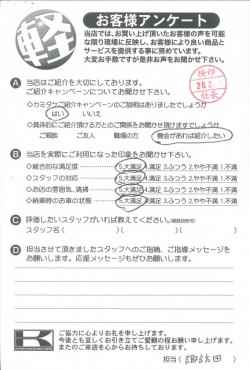 軽
お客様アンケート
当店では、お買い上げ頂いたお客様の声を可能
な限り現場に反映し、お客様により良い商品と
サービスを提供する事に努めています。
大変お手数ですが是非お声をお聞かせ下さい。
A 当店はご紹介を大切にしております。
ご紹介キャンペーンについてお聞かせ下さい。
◇カミタケご紹介キャンペーンのご説明はありましたでしょうか
はい いいえ
◇具体的にご紹介頂ける方とのご関係をお聞かせ頂けますでしょうか
ご親族 ご友人 職場の方 機会があれば紹介したい
検印
社長
B 当店を実際にご利用になった印象をお聞かせ下さい。
◇総合的な満足度 5.大満足 4.満足 3.ふつう 2.やや不満 1.不満
◇スタッフの対応 5.大満足 4.満足 3.ふつう 2.やや不満 1.不満
◇お店の雰囲気、清掃 5.大満足 4.満足 3.ふつう 2.やや不満 1.不満
◇納車時のお車の状態 5.大満足 4.満足 3.ふつう 2.やや不満 1.不満
C 評価したいスタッフがいれば教えてください。(複数回答可)
スタッフ名( )( )( )
D 担当させて頂きましたスタッフへのご指摘、ご指導メッセージを
お願いします。応援メッセージもぜひお願いします。
K
ご協力に心よりお礼を申し上げます。
今後とも宜しくお引き立てご愛顧の程お願い申し上げます。
またのご来店を心からお待ちしております。
担当( )